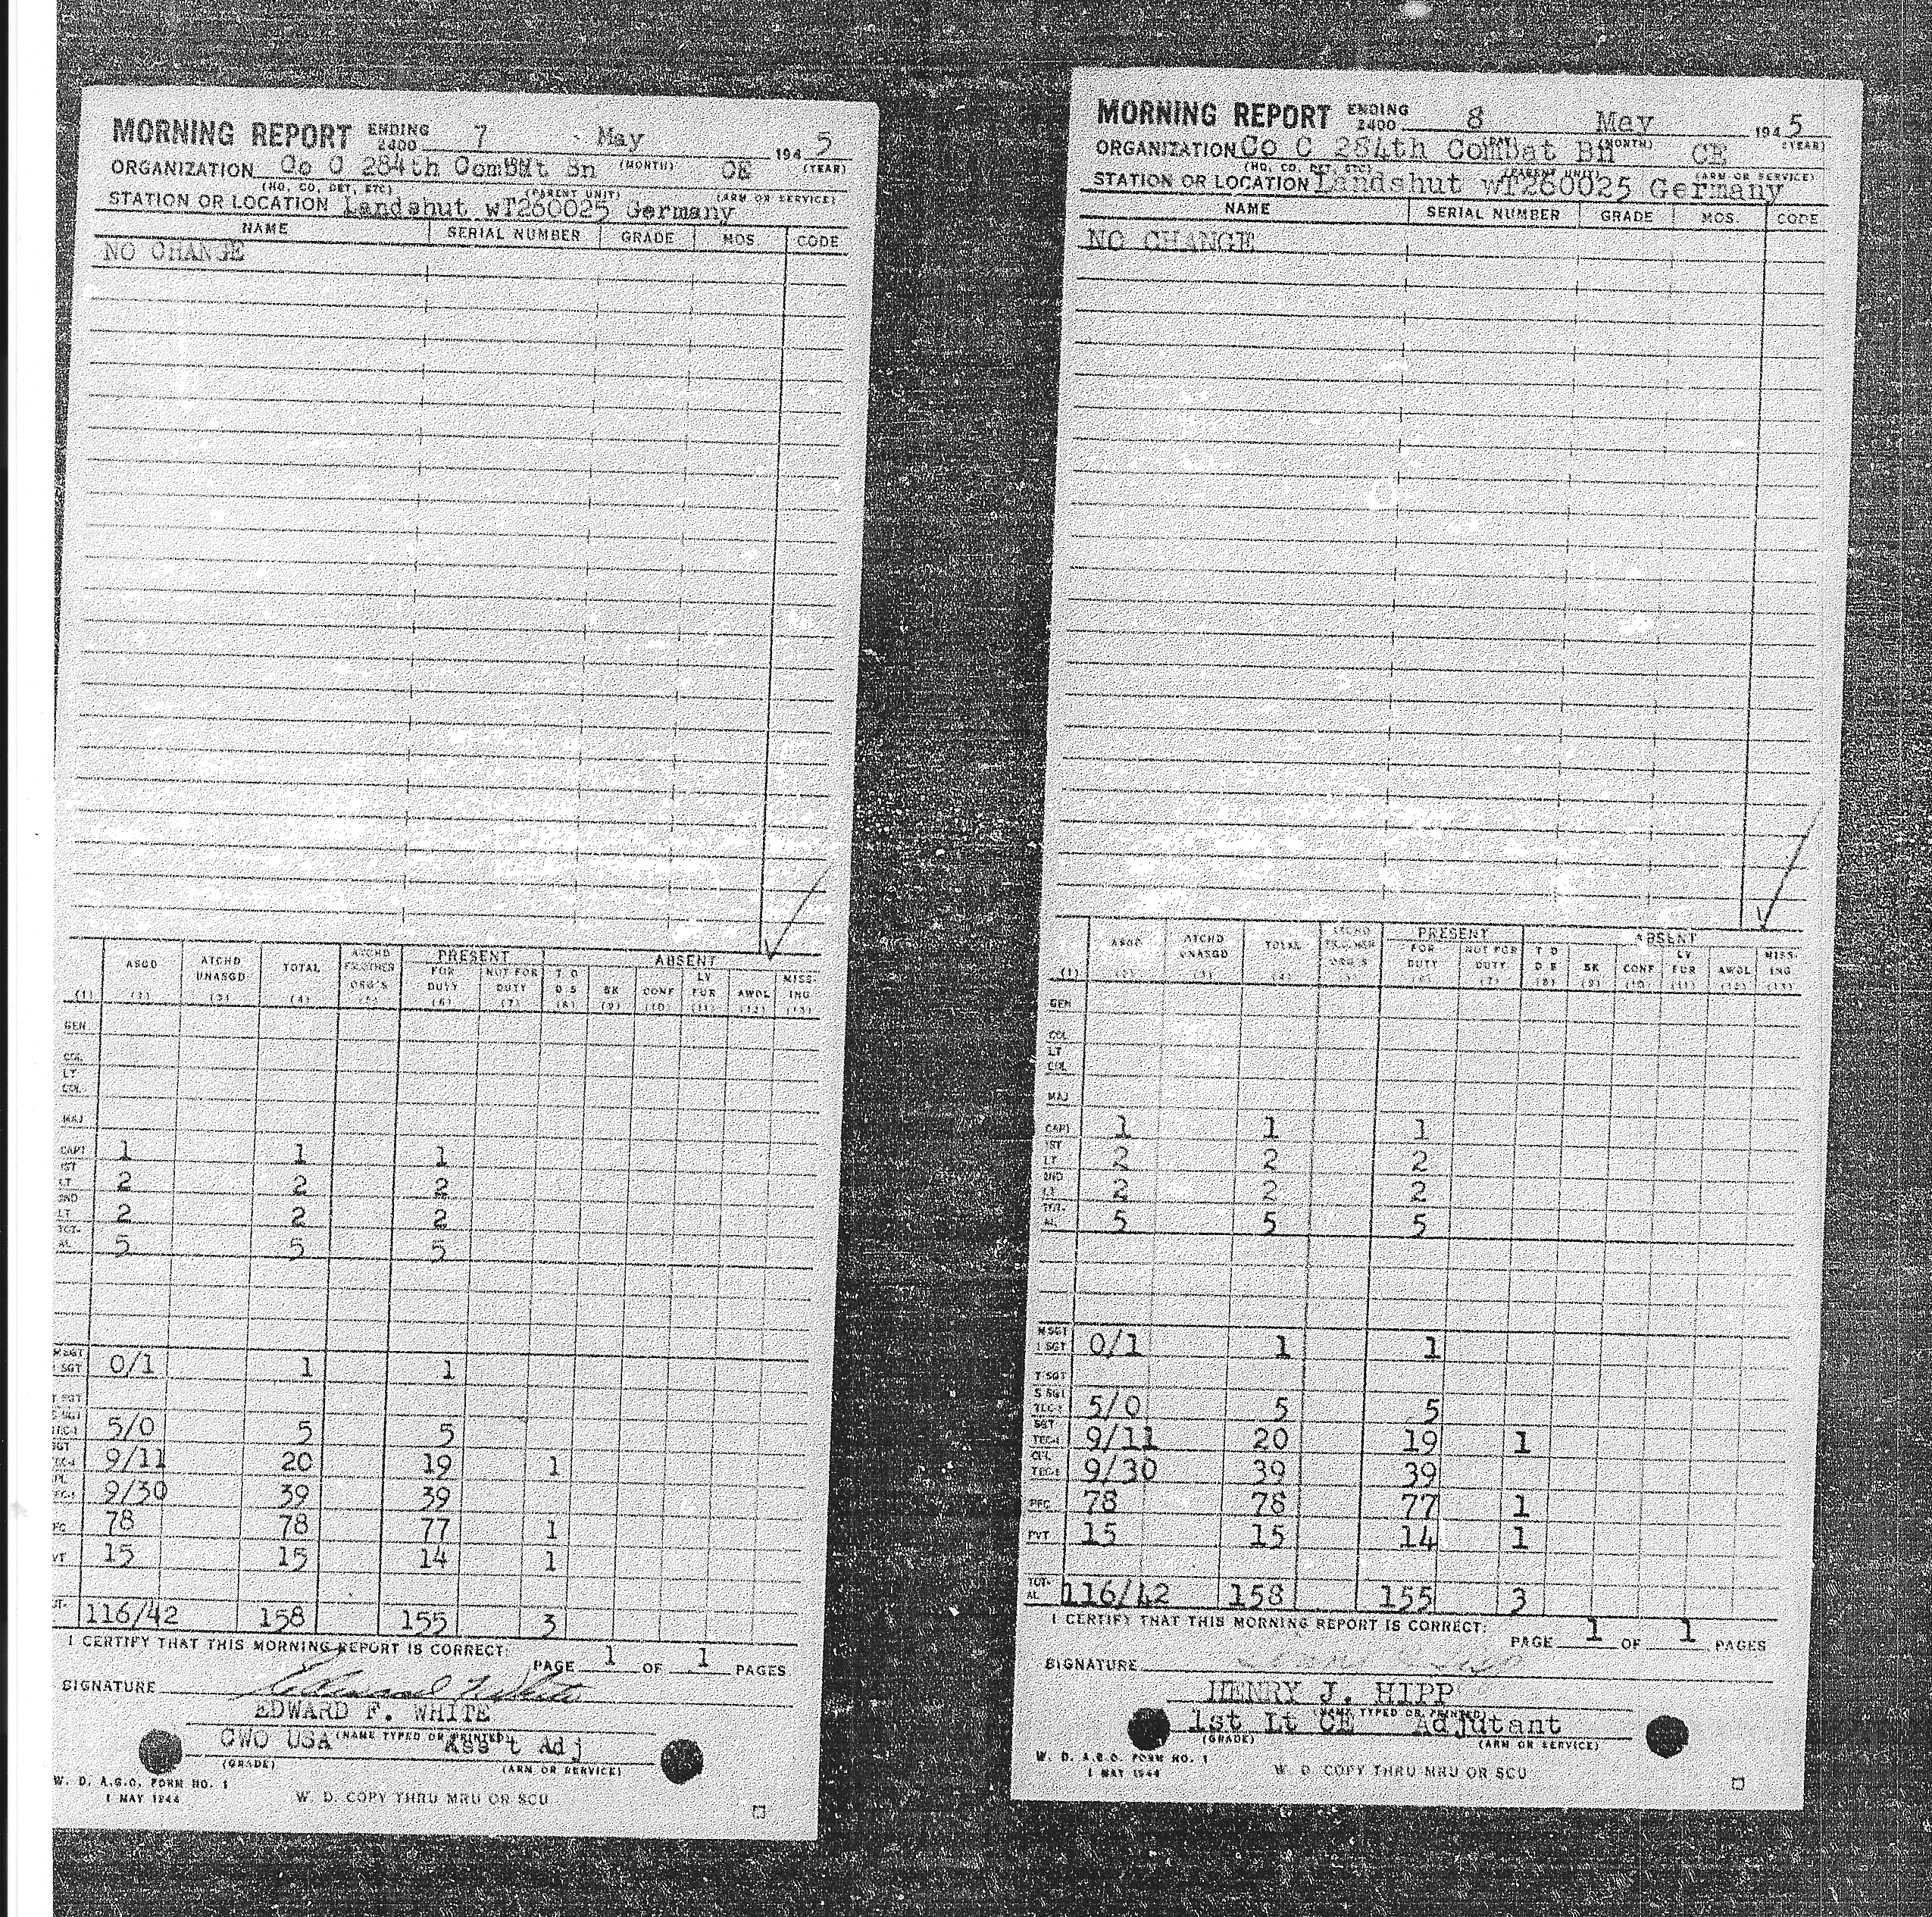 MORNING REPORT ENDING 2400 7 May 1945
(MONTH) (YEAR)
ORGANIZATION Co C 284th Combat Bn CE
(HQ, CO, DET, ETC) (PARENT UNIT) (ARM OR SERVICE)
STATION OR LOCATION Landshut wT260025 Germany
NAME SERIAL NUMBER GRADE MOS. CODE
NO CHANGE
PRESENT ABSENT
ASGD ATCHD UNASGD TOTAL ATCHD FR OTHER ORG'S FOR DUTY NOT FOR DUTY T D D S SK CONF LV FUR AWOL MISS-ING
(1) (2) (3) (4) (5) (6) (7) (8) (9) (10) (11) (12) (13)
GEN
COL
LT COL
MAJ
CAPT 1 1 1
1ST LT 2 2 2
2ND LT 2 2 2
TOT-AL 5 5 5
M SGT 1 SGT 0/1 1 1
T SGT
S SGT TEC-3 5/0 5 5
SGT TEC-4 9/11 20 19 1
CPL TEC-5 9/30 39 39
PFC 78 78 77 1
PVT 15 15 14 1
TOT- 116/42 158 155 3
I CERTIFY THAT THIS MORNING REPORT IS CORRECT:
PAGE 1 OF 1 PAGES
SIGNATURE Edward F White
EDWARD F. WHITE
(NAME TYPED OR PRINTED)
CWO USA Ass't Adj
(GRADE) (ARM OR SERVICE)
W. D. A.G.O. FORM NO. 1
1 MAY 1944
W. D. COPY THRU MRU OR SCU
MORNING REPORT ENDING 2400 8 May 1945
(DAY) (MONTH) (YEAR)
ORGANIZATION Co C 284th Combat Bn CE
(HQ, CO, DET, ETC) (PARENT UNIT) (ARM OR SERVICE)
STATION OR LOCATION Landshut wT260025 Germany
NAME SERIAL NUMBER GRADE MOS. CODE
NO CHANGE
PRESENT ABSENT
ASGD ATCHD UNASGD TOTAL ATCHD FR OTHER ORG'S FOR DUTY NOT FOR DUTY T D D S SK CONF LV FUR AWOL MISS-ING
(1) (2) (3) (4) (5) (6) (7) (8) (9) (10) (11) (12) (13)
GEN
COL
LT COL
MAJ
CAPT 1 1 1
1ST LT 2 2 2
2ND LT 2 2 2
TOT-AL 5 5 5
M SGT 1 SGT 0/1 1 1
T SGT
S SGT TEC-3 5/0 5 5
SGT TEC-4 9/11 20 19 1
CPL TEC-5 9/30 39 39
PFC 78 78 77 1
PVT 15 15 14 1
TOT-AL 116/42 158 155 3
I CERTIFY THAT THIS MORNING REPORT IS CORRECT:
PAGE 1 OF 1 PAGES
SIGNATURE
HENRY J. HIPP
(NAME TYPED OR PRINTED)
1st Lt CE Adjutant
(GRADE) (ARM OR SERVICE)
W. D. A.G.O. FORM NO. 1
1 MAY 1944
W. D. COPY THRU MRU OR SCU